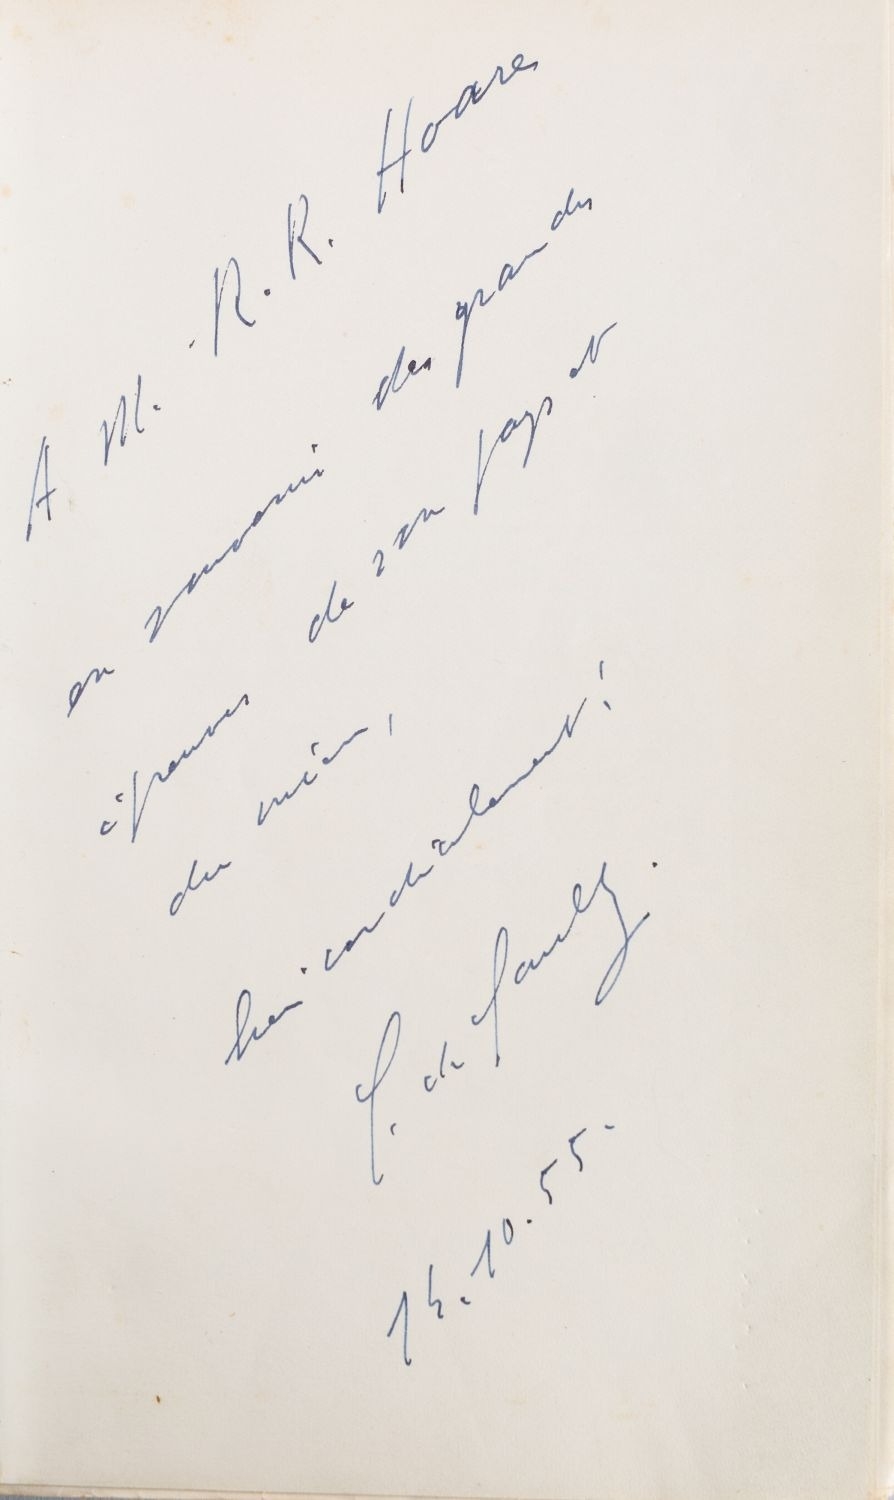 A M. R. R. Hoare
en souvenir des grandes
épreuves de son pays et
du mien,
bien cordialement!
C. de Gaulle.
14.10.55.